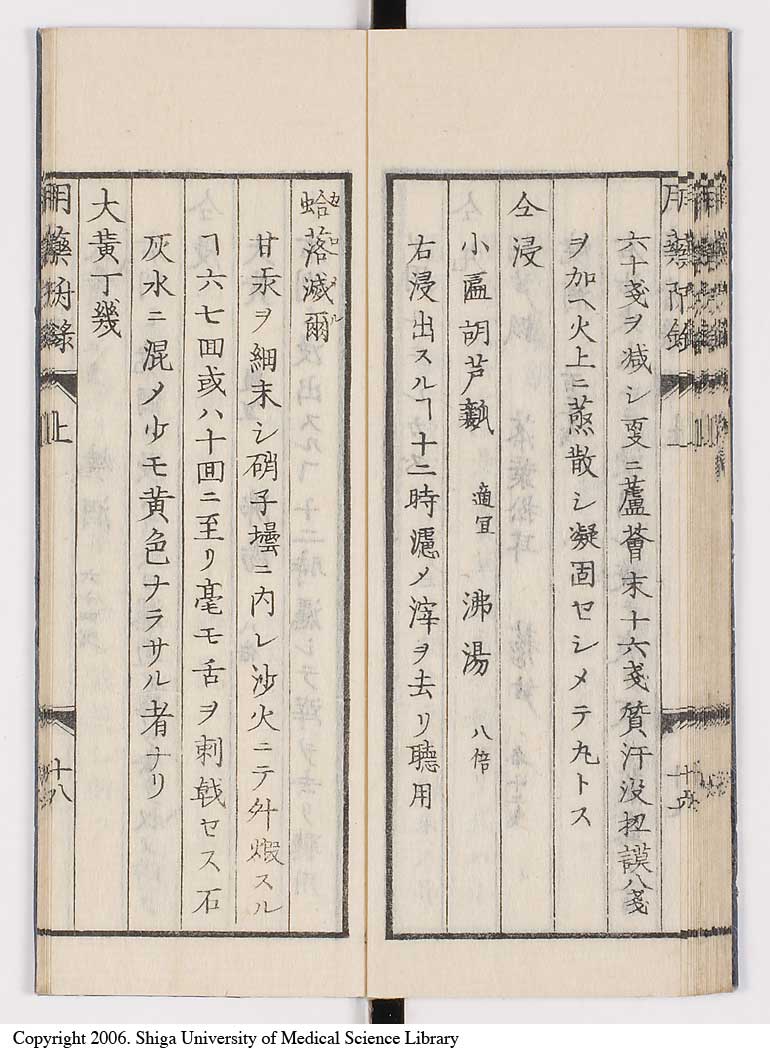 六十戔ヲ减シ更ニ蘆薈末十六戔質汗没挧謨八戔
ヲ加ヘ火上ニ蒸散シ凝固セシメテ丸トス
仝浸
小匾胡芦瓤 適宜 沸湯 八倍
右浸出スルヿ十二時濾メ滓ヲ去リ聴用
蛤落滅爾
カロメル
甘汞ヲ細末シ硝子壜ニ内レ沙火ニテ外煅スル
ヿ六七回或ハ十回ニ至リ毫モ舌ヲ刺戟セス石
灰水ニ混メ少モ黄色ナラサル者ナリ
大黄丁幾
用藥 録 上 十八
Copyright 2006. Shiga University of Medical Science Library